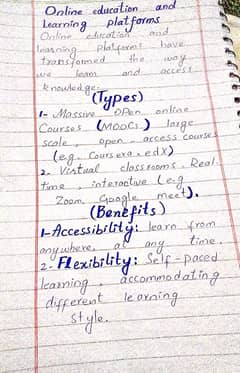 Online education and
Learning platforms
Online education and
learning platforms have
transformed the way
we learn and access
knowledge.
(Types)
1- Massive Open online
Courses (MOOCs) large
scale, open-access courses
(e.g. Coursera, edX)
2. Virtual classrooms. Real
time, interactive (e.g
Zoom, Google Meet).
(Benefits)
1-Accessibility: learn from
anywhere, at any time.
2- Flexibility: Self-paced
learning, accommodating
different learning
style.